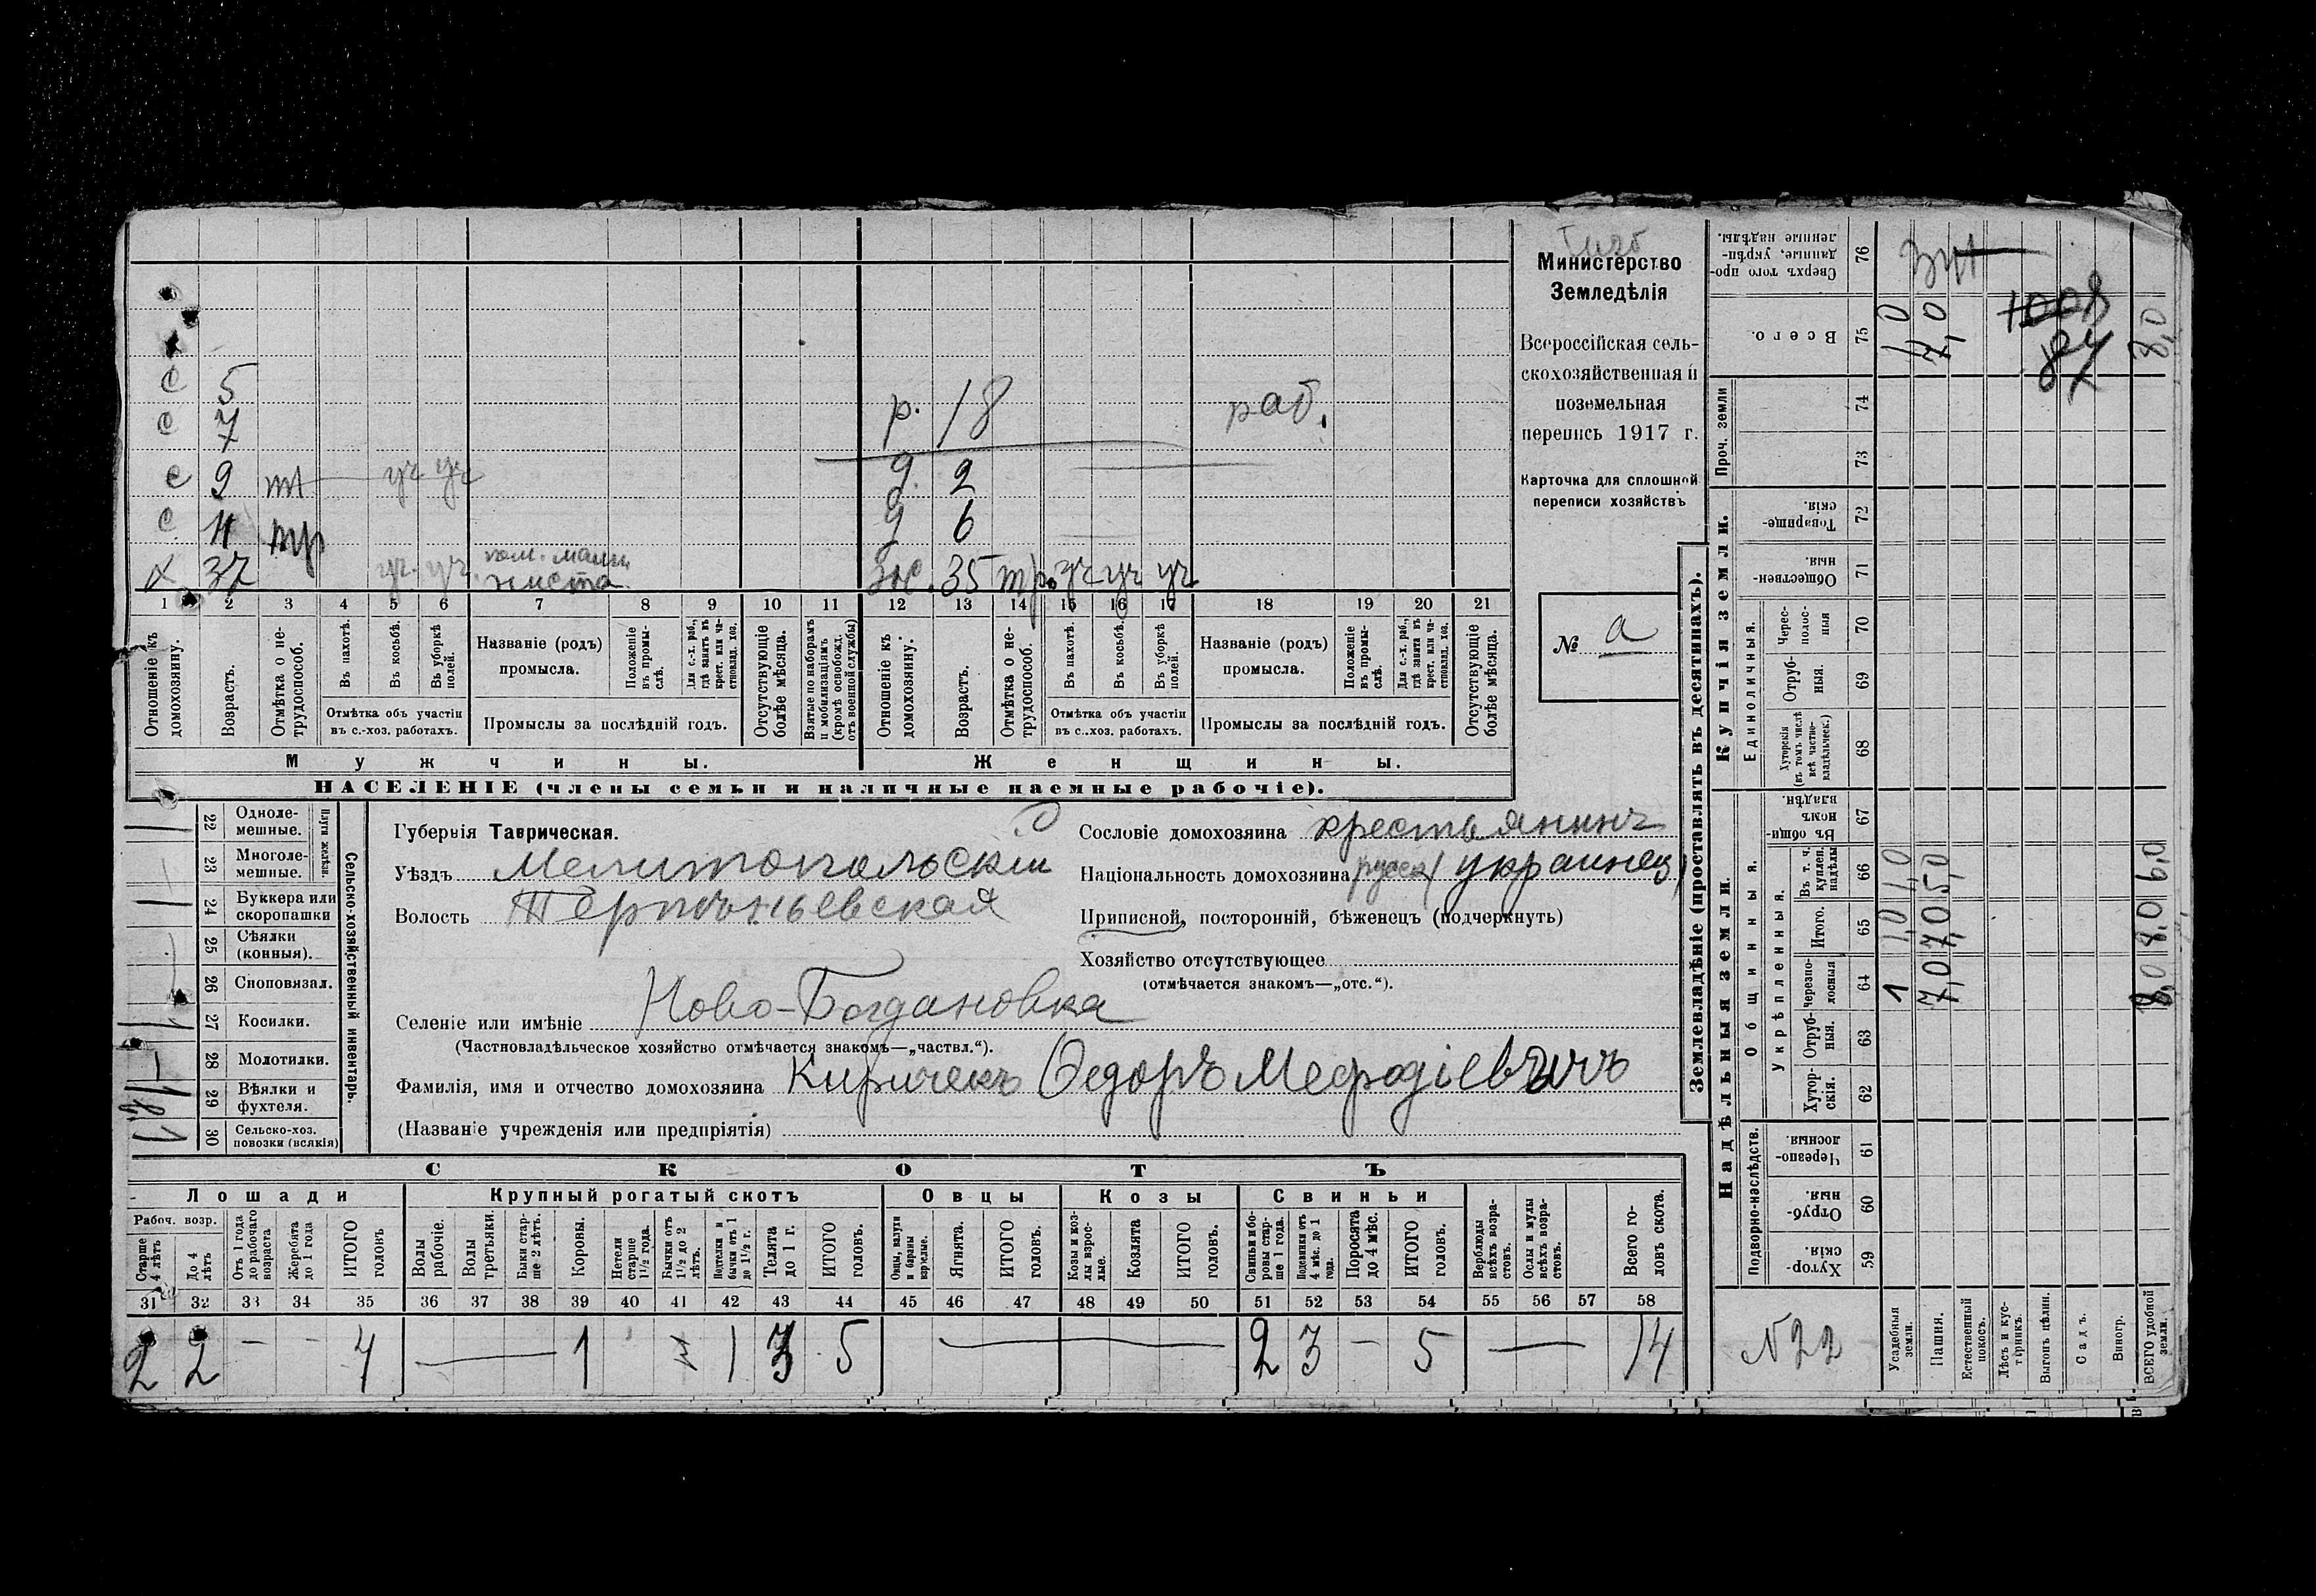 Министерство
Земледѣлія
Всероссійская сель-
скохозяйственная и
поземельная
перепись 1917 г.
Карточка для сплошной
переписи хозяйствъ
№ а
с 5
с 7
с 9
с 11
х 37
р. 18 раб.
д. 2
д 6
35 уч уч уч
1 2 3 4 5 6 7 8 9 10 11 12 13 14 15 16 17 18 19 20 21
Отношеніе къ домохозяину.
Возрастъ.
Отмѣтка о не-трудоспособ.
Въ пахотѣ.
Въ косьбѣ.
Въ уборкѣ полей.
Отмѣтка объ участіи
въ с.-хоз. работахъ.
Названіе (родъ)
промысла.
Положеніе въ промы-слѣ.
Для с.-х. раб., гдѣ занятъ въ крест. или ча-стновлад. хоз.
Промыслы за послѣдній годъ.
Отсутствующіе болѣе мѣсяца.
Взятые по наборамъ и мобилизаціямъ (кромѣ освобожд. отъ военной службы)
Отношеніе къ домохозяину.
Возрастъ.
Отмѣтка о не-трудоспособ.
Въ пахотѣ.
Въ косьбѣ.
Въ уборкѣ полей.
Отмѣтка объ участіи
въ с.-хоз. работахъ.
Названіе (родъ)
промысла.
Положеніе въ промы-слѣ.
Для с.-х. раб., гдѣ занятъ въ крест. или ча-стновлад. хоз.
Промыслы за послѣдній годъ.
Отсутствующіе болѣе мѣсяца.
Мужчины. Женщины.
НАСЕЛЕНІЕ (члены семьи и наличные наемные рабочіе).
Сельско-хозяйственный инвентарь.
Плуги желѣзн.
22 Одноле-мешные.
23 Многоле-мешные.
24 Буккера или скоропашки
25 Сѣялки (конныя).
26 Сноповязал.
27 Косилки.
28 Молотилки.
29 Вѣялки и фухтеля.
30 Сельско-хоз. повозки (всякія)
Губернія Таврическая.
Уѣздъ Мелитопольскій
Волость Терпѣньевская
Селеніе или имѣніе Ново-Богдановка
(Частновладѣльческое хозяйство отмѣчается знакомъ—„частвл.“).
Фамилія, имя и отчество домохозяина Киричекъ Ѳедоръ Мефодіевичъ
(Названіе учрежденія или предпріятія)
Сословіе домохозяина крестьянинъ
Національность домохозяина (украинец)
Приписной, посторонній, бѣженец (подчеркнуть)
Хозяйство отсутствующее
(отмѣчается знакомъ—„отс.“).
СКОТЪ
Лошади Крупный рогатый скотъ Овцы Козы Свиньи
Рабоч. возр.
Старше 4 лѣтъ
До 4 лѣтъ
Отъ 1 года до рабочаго возраста
Жеребята до 1 года
ИТОГО головъ
Волы рабочіе.
Волы третьяки.
Быки стар-ше 2 лѣтъ.
Коровы.
Нетели старше 1½ года.
Бычки отъ 1½ до 2 лѣтъ.
Подтелки и бычки отъ 1 до 1½ г.
Телята до 1 г.
ИТОГО головъ.
Овцы, валухи и бараны взрослые.
Ягнята.
ИТОГО головъ.
Козы и коз-лы взрос-лые.
Козлята
ИТОГО головъ.
Свиньи и бо-ровы стар-ше 1 года.
Подсвинки отъ 4 мѣс. до 1 года.
Поросята до 4 мѣс.
ИТОГО головъ.
Верблюды всѣхъ возра-стовъ.
Ослы и мулы всѣхъ возра-стовъ.
Всего го-ловъ скота.
31 32 33 34 35 36 37 38 39 40 41 42 43 44 45 46 47 48 49 50 51 52 53 54 55 56 57 58
2 2 — — 4 — 1 1 3 5 — 2 3 — 5 — 14
Землевладѣніе (проставлять въ десятинахъ).
Купчія земли.
Надѣльныя земли.
Сверхъ того про-данные, укрѣп-ленные надѣлы. 76
Всего. 75
Проч. земли 74 73
Товарище-скія. 72
Обществен-ныя. 71
Единоличныя.
Черес-полос-ныя 70
Отруб-ныя. 69
Хуторскія (въ томъ числѣ всѣ частно-владѣльческ.) 68
Общинныя.
Въ общи-номъ владѣн. 67
Укрѣпленныя.
Въ т. ч. куплен. надѣлы 66
Итого. 65
Черезпо-лосныя 64
Отруб-ныя. 63
Хутор-скія. 62
Подворно-наслѣдств.
Черезпо-лосныя 61
Отруб-ныя. 60
Хутор-скія. 59
Усадебныя земли. 1 1,0 1,0 1,0
Пашня. 7,0 7,0 5,0 7,0
Естественный покосъ.
Лѣсъ и кус-тарникъ.
Выгонъ цѣлин.
Садъ.
Виногр.
ВСЕГО удобной земли. 8,0 8,0 6,0 8,0
1008
87
N22